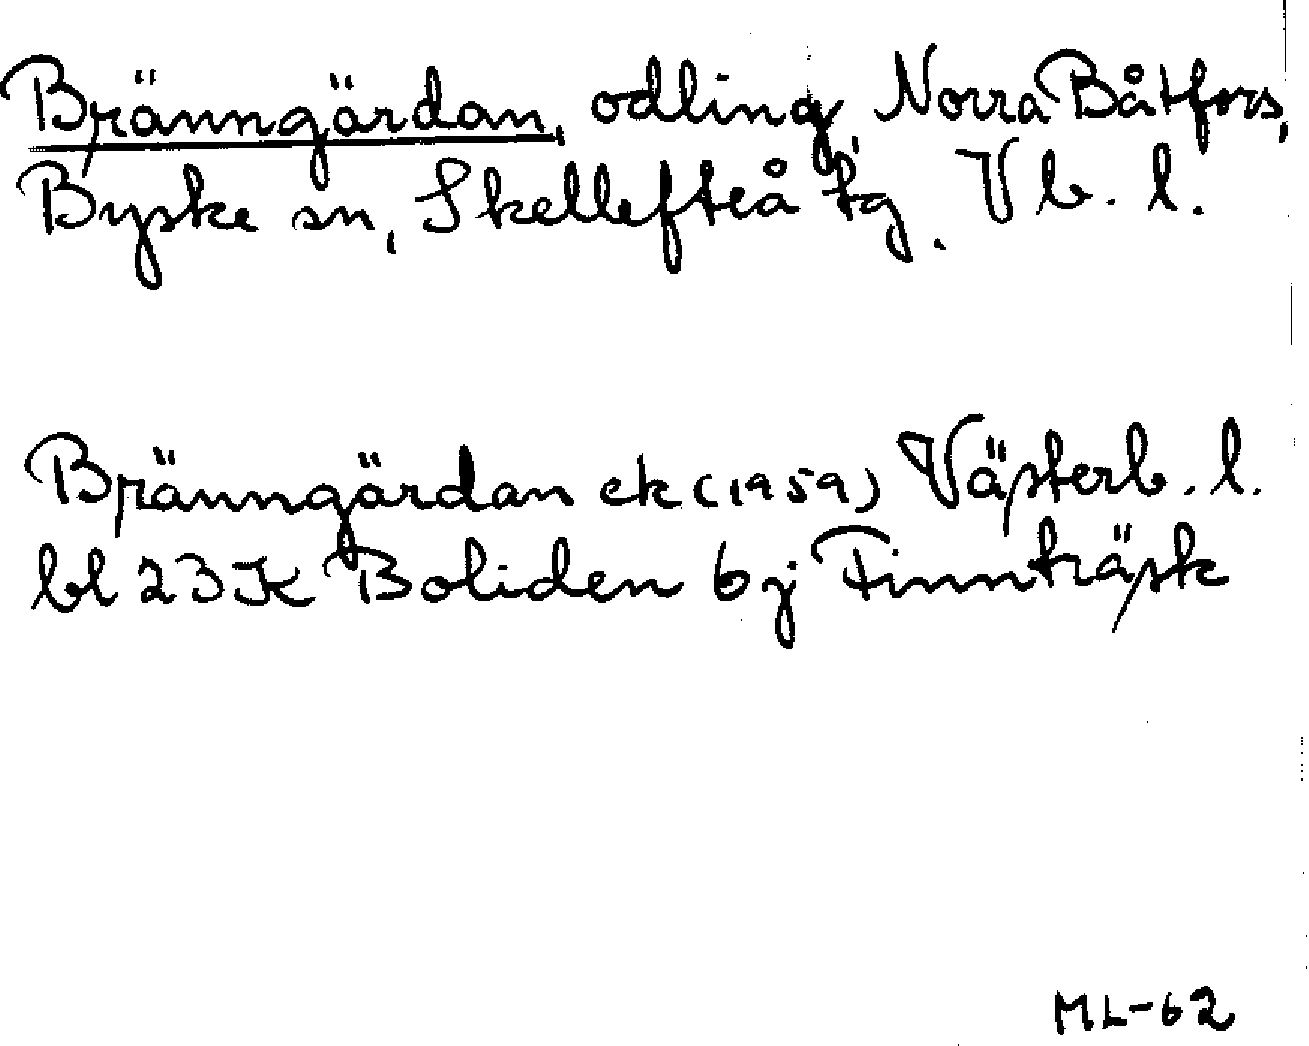 Brännğärdan, odling, Norra Båtfors,
Byske sn, Skellefteå tg. Vb. l.
Bränngärdan ek (1959) Västerb. l.
bl 23 K Boliden 6j Finnträsk
ML-62